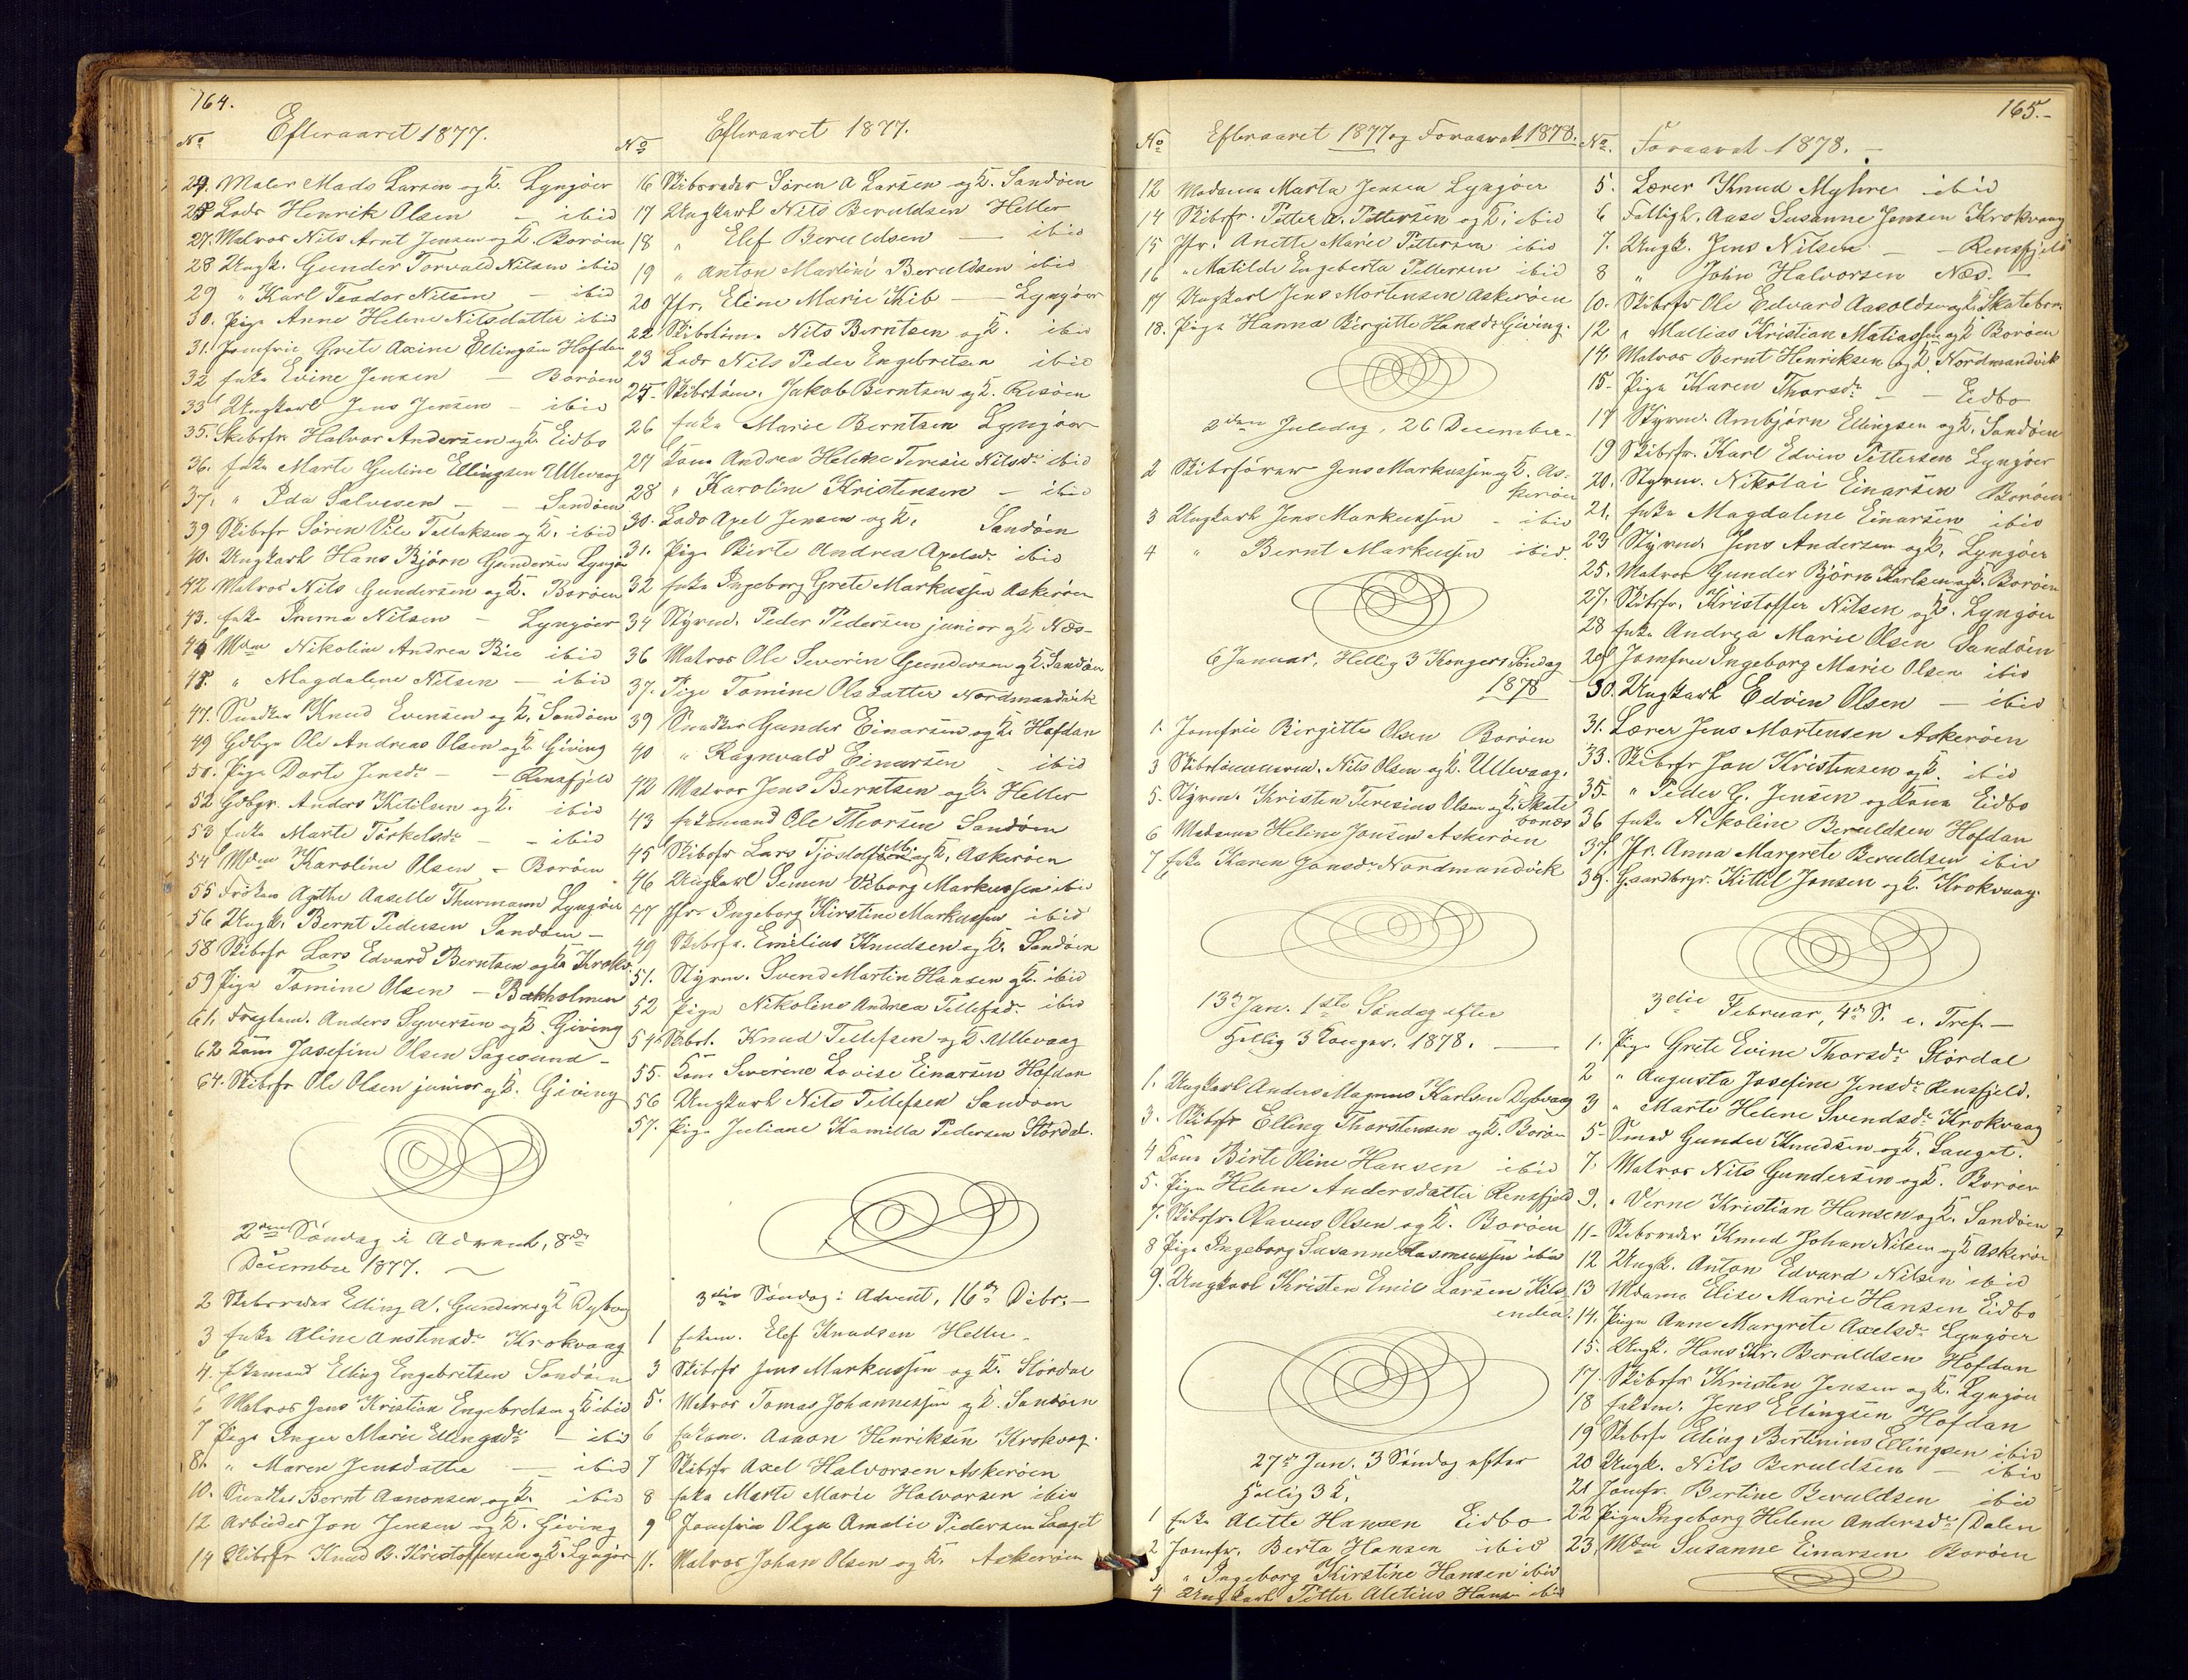 164.
No
Efteraaret 1877.
24. Maler Mads Larsen og K. Lyngöer
25 Lods Henrik Olsen — ibid
27. Matros Nils Arnt Jensen og K. Boröen
28 Ungk. Gunder Torvald Nilsen ibid
29 " Karl Teodor Nilsen — ibid
30. Pige Anne Helene Nilsdatter ibid
31. Jomfrue Grete Axine Ellingsen Hofdan
32 Enke Evine Jensen — Boröen
33 Ungkarl Jens Jensen — ibid
35. Skibsfr Halvor Andersen og K. Eidbo
36. Enke Marte Guline Ellingsen Ullevaag
37. " Ida Salvesen — Sandöen
39 Skibsfr Sören Tellaksen og K. ibid
40. Ungkarl Hans Björn Gundersen Lyngör
42 Matros Nils Gundersen og K. Boröen
43. Enke Imma Nilsen — Lyngöer
44 Mdm Nikoline Andrea Bie ibid
45. " Magdalene Nilsen — ibid
47. Snedker Knud Evensen og K. Sandöen
49 Gdbgr Ole Andreas Olsen og K. Giving
50. Pige Dorte Jensdr — Rensfjeld
52 Gdbgr. Anders Ketilsen og K. ibid
53 Enke Marte Törkelsdr — ibid
54 Mdm Karoline Olsen — Boröen
55 Fröken Agthe Aaselle Thurmann Lyngöer
56 Ungk. Bernt Pedersen Sandöen —
58 Skibsfr Lars Edvard Berntsen og K. Krokv.
59 Pige Tomine Olsen — Bækholmen
61. Anders Syversen og K. Giving
62 Kone Josefine Olsen Sagesund —
64. Skibsfr Ole Olsen junior og K. Giving
2den Söndag i Advent, 8de
December 1877.
2 Skibsreder Elling A. Gundersen og K Dybvag
3 Enke Aline Anstensdr Krokvaag
4. Enkemand Elling Engebretsen Sandöen
6 Matros Jens Kristian Engebretsen og K ibid
7 Pige Inger Marie Ellingsdr — ibid
8. " Maren Jensdatter — ibid
10. Snedker Bernt Aanonsen og K. ibid
12 Arbeider Jon Jensen og K. Giving
14 Skibsfr Knud B. Kristoffersen og K. Lyngör
No
Efteraaret 1877.
16 Skibsreder Sören A Larsen og K. Sandöen
17 Ungkarl Nils Beruldsen Heller
18 " Elef Beruldsen — ibid
19 " Anton Martini Beruldsen ibid
20 Jfr. Eline Marie Kib — Lyngöer
22 Skibstöm. Nils Berntsen og K. ibid
23 Lods Nils Peder Engebretsen ibid
25. Skibstöm. Jakob Berntsen og K. Risöen
26 Enke Marie Berntsen Lyngöer
27 Kone Andrea Helene Teresie Nilsdr ibid
28 " Karoline Kristensen — ibid
30. Lods Axel Jensen og K. Sandöen
31. Pige Birte Andrea Axelsdr ibid
32 Enke Ingeborg Grete Markussen Askeröen
34 Styrm. Peder Pedersen junior og K Næs —
36 Matros Ole Severin Gundersen og K. Sandöen
37. Pige Tomine Olsdatter Nordmandvik
39 Snedker Gunder Einarsen og K. Hofdan
40 " Ragnvald Einarsen — ibid
42 Matros Jens Berntsen og K. Heller
43 Enkemand Ole Thorsen Sandöen
45 Skibsfr Lars Tjöstolfsen og K. Askeröen
46 Ungkarl Simen Viborg Markussen ibid
47 Jfr. Ingeborg Kirstine Markussen ibid
49 Skibsfr. Emilius Knudsen og K. Sandöen
51. Styrm. Svend Martin Hansen og K. ibid
52 Pige Nikoline Andrea Tellefsdr ibid
54 Skibst. Knud Tellefsen og K. Ullevaag
55. Kone Severine Lovise Einarsen Hofdan
56 Ungkarl Nils Tellefsen Sandöen
57. Pige Juliane Kamilla Pedersen Stördal.
3die Söndag i Advent, 16de Debr. —
1 Enkem. Elef Knudsen Heller.
3 Skibsfr Jens Markussen og K. Stördal
5. Matros Tomas Johannessen og K. Sandöen
6 Enkem. Aanon Henriksen Krokvag.
7 Skibsfr Axel Halvorsen Askeröen
8 Enke Marte Marie Halvorsen ibid
9 Jomfrue Olga Amalie Pedersen Lauget
11. Matros Johan Olsen og K. Askeröen
165.—
No
Efteraaret 1877 og Foraaret 1878.
12 Madame Marta Jensen Lyngöer
14 Skibsfr. Petter A. Pettersen og K. ibid
15 Jfr. Anette Marie Pettersen ibid
16 " Matilde Engeberta Pettersen ibid
17 Ungkarl Jens Mortensen Askeröen
18. Pige Hanna Birgitte Hansdr Giving.
2den Juledag, 26 December.
2 Skibsförer Jens Markussen og K. As-
keröen
3 Ungkarl Jens Markussen — ibid
4 " Bernt Markussen ibid.
6 Januar, Hellig 3 Kongers Söndag
1878
1. Jomfrue Birgitte Olsen Boröen
3 Skibstömmerm. Nils Olsen og K. Ullevaag.
5. Styrm. Kristen Teresius Olsen og K. Skate
bonæs
6 Madame Heline Jonsen Askeröen
7 Enke Karen Jonsdr Nordmandvik
13de Jan. 1ste Söndag efter
Hellig 3 Konger. 1878. —
1. Ungkarl Anders Magnus Karlsen Dybvaag
3. Skibsfr Elling Thorstensen og K. Boröen
4 Kone Birte Oline Hansen ibid
5. Pige Helene Andersdatter Rensfjeld
7. Skibsfr. Olavus Olsen og K. Boröen
8 Pige Ingeborg Susanne Rasmussen ibid
9. Ungkarl Kristen Emil Larsen Kils-
enden.
27de Jan. 3 Söndag efter
Hellig 3 K.
1 Enke Alette Hansen Eidbo
2 Jomfr. Berta Hansen ibid
3 " Ingeborg Kirstine Hansen ibid
4 Ungkarl Petter Aletius Hansen ibid
No.
Foraaret 1878. —
5. Lærer Knud Myhre ibid
6 Fattigl. Aase Susanne Jensen Krokvaag
7. Ungk. Jens Nilsen — Rensfjeld
8 " John Halvorsen Næs. —
10. Skibsfr Ole Edvard Aasoldsen og K. Skatebon.
12 " Mattias Kristian Matiassen og K. Boröen
14. Matros Bernt Henriksen og K. Nordmandvik
15. Pige Karen Thorsdr — Eidbo
17 Styrm. Arnbjørn Ellingsen og K. Sandöen
19 Skibsfr. Karl Edvin Pettersen Lyngöer
20. Styrm. Nikolai Einarsen Boröen
21. Enke Magdalene Einarsen ibid
23 Styrm. Jens Andersen og K. Lyngöer
25. Matros Gunder Björn Karlsen og K. Boröen
27. Skibsfr. Kristoffer Nilsen og K. Lyngöer
28 Enke Andrea Marie Olsen Sandöen
29 Jomfrue Ingeborg Marie Olsen ibid
30. Ungkarl Edvin Olsen — ibid
31. Lærer Jens Mortensen Askeröen
33. Skibsfr Jon Kristensen og K. ibid
35. " Peder G. Jensen og Kone Eidbo
36 Enke Nikoline Beruldsen Hofdan
37. Jfr. Anna Margrete Beruldsen ibid
39. Gaardbrgr. Kittil Jonsen og K. Krokvaag.
3die Februar, 4de S. e. Tref. —
1. Pige Grete Evine Thorsdr Stördal
2 " Augusta Josefine Jensdr Rensfjeld.
3 " Marte Helene Svendsdr Krokvaag
5 Smed Gunder Knudsen og K. Lauget.
7. Matros Nils Gundersen og K. Boröen
9. " Verne Kristian Hansen og K. Sandöen
11 — Skibsreder Knud Johan Nilsen og K Askeröe
12 Ungk. Anton Edvard Nilsen ibid
13 Mdame Elise Marie Hansen Eidbo
14. Pige Anne Margrete Axelsdr Lyngöer
15. Ungk. Hans Kr. Beruldsen Hofdan
17. Skibsfr Kristen Jensen og K. Lyngöer
18 Enkem. Jens Ellingsen Hofdan
19 Skibsfr Eling Bertinius Ellingsen ibid
20 Ungk. Nils Beruldsen — ibid
21 Jomfr. Bertine Beruldsen ibid
22 Pige Ingeborg Helene Andersdr (Dalen
23. Mdm Susanne Einarsen Boröen